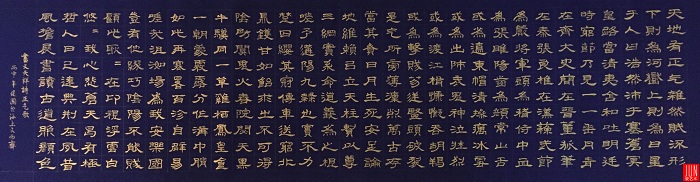 天地有正氣雜然賦流形
下則為河嶽上則為日星
于人曰浩然沛乎塞蒼冥
皇路當清夷含和吐明廷
時窮節乃見一一垂丹青
在齊太史簡在晉董狐筆
在秦張良椎在漢蘇武節
為嚴將軍頭為嵇侍中血
為張睢陽齒為顏常山舌
或為遼東帽清操厲冰雪
或為出師表鬼神泣壯烈
或為渡江楫慷慨吞胡羯
或為擊賊笏逆豎頭破裂
是氣所磅礴凜烈萬古存
當其貫日月生死安足論
地維賴以立天柱賴以尊
三綱實繫命道義為之根
嗟予遘陽九隸也實不力
楚囚纓其冠傳車送窮北
鼎鑊甘如飴求之不可得
陰房闃鬼火春院閟天黑
牛驥同一皂雞棲鳳凰食
一朝濛霧露分作溝中瘠
如此再寒暑百沴自辟易
嗟哉沮洳場為我安樂國
豈有他繆巧陰陽不能賊
顧此耿〻在仰視浮雲白
悠〻我心悲蒼天曷有極
哲人日已遠典刑在夙昔
風簷展書讀古道照顏色
書文天祥詩正氣歌
丙申年